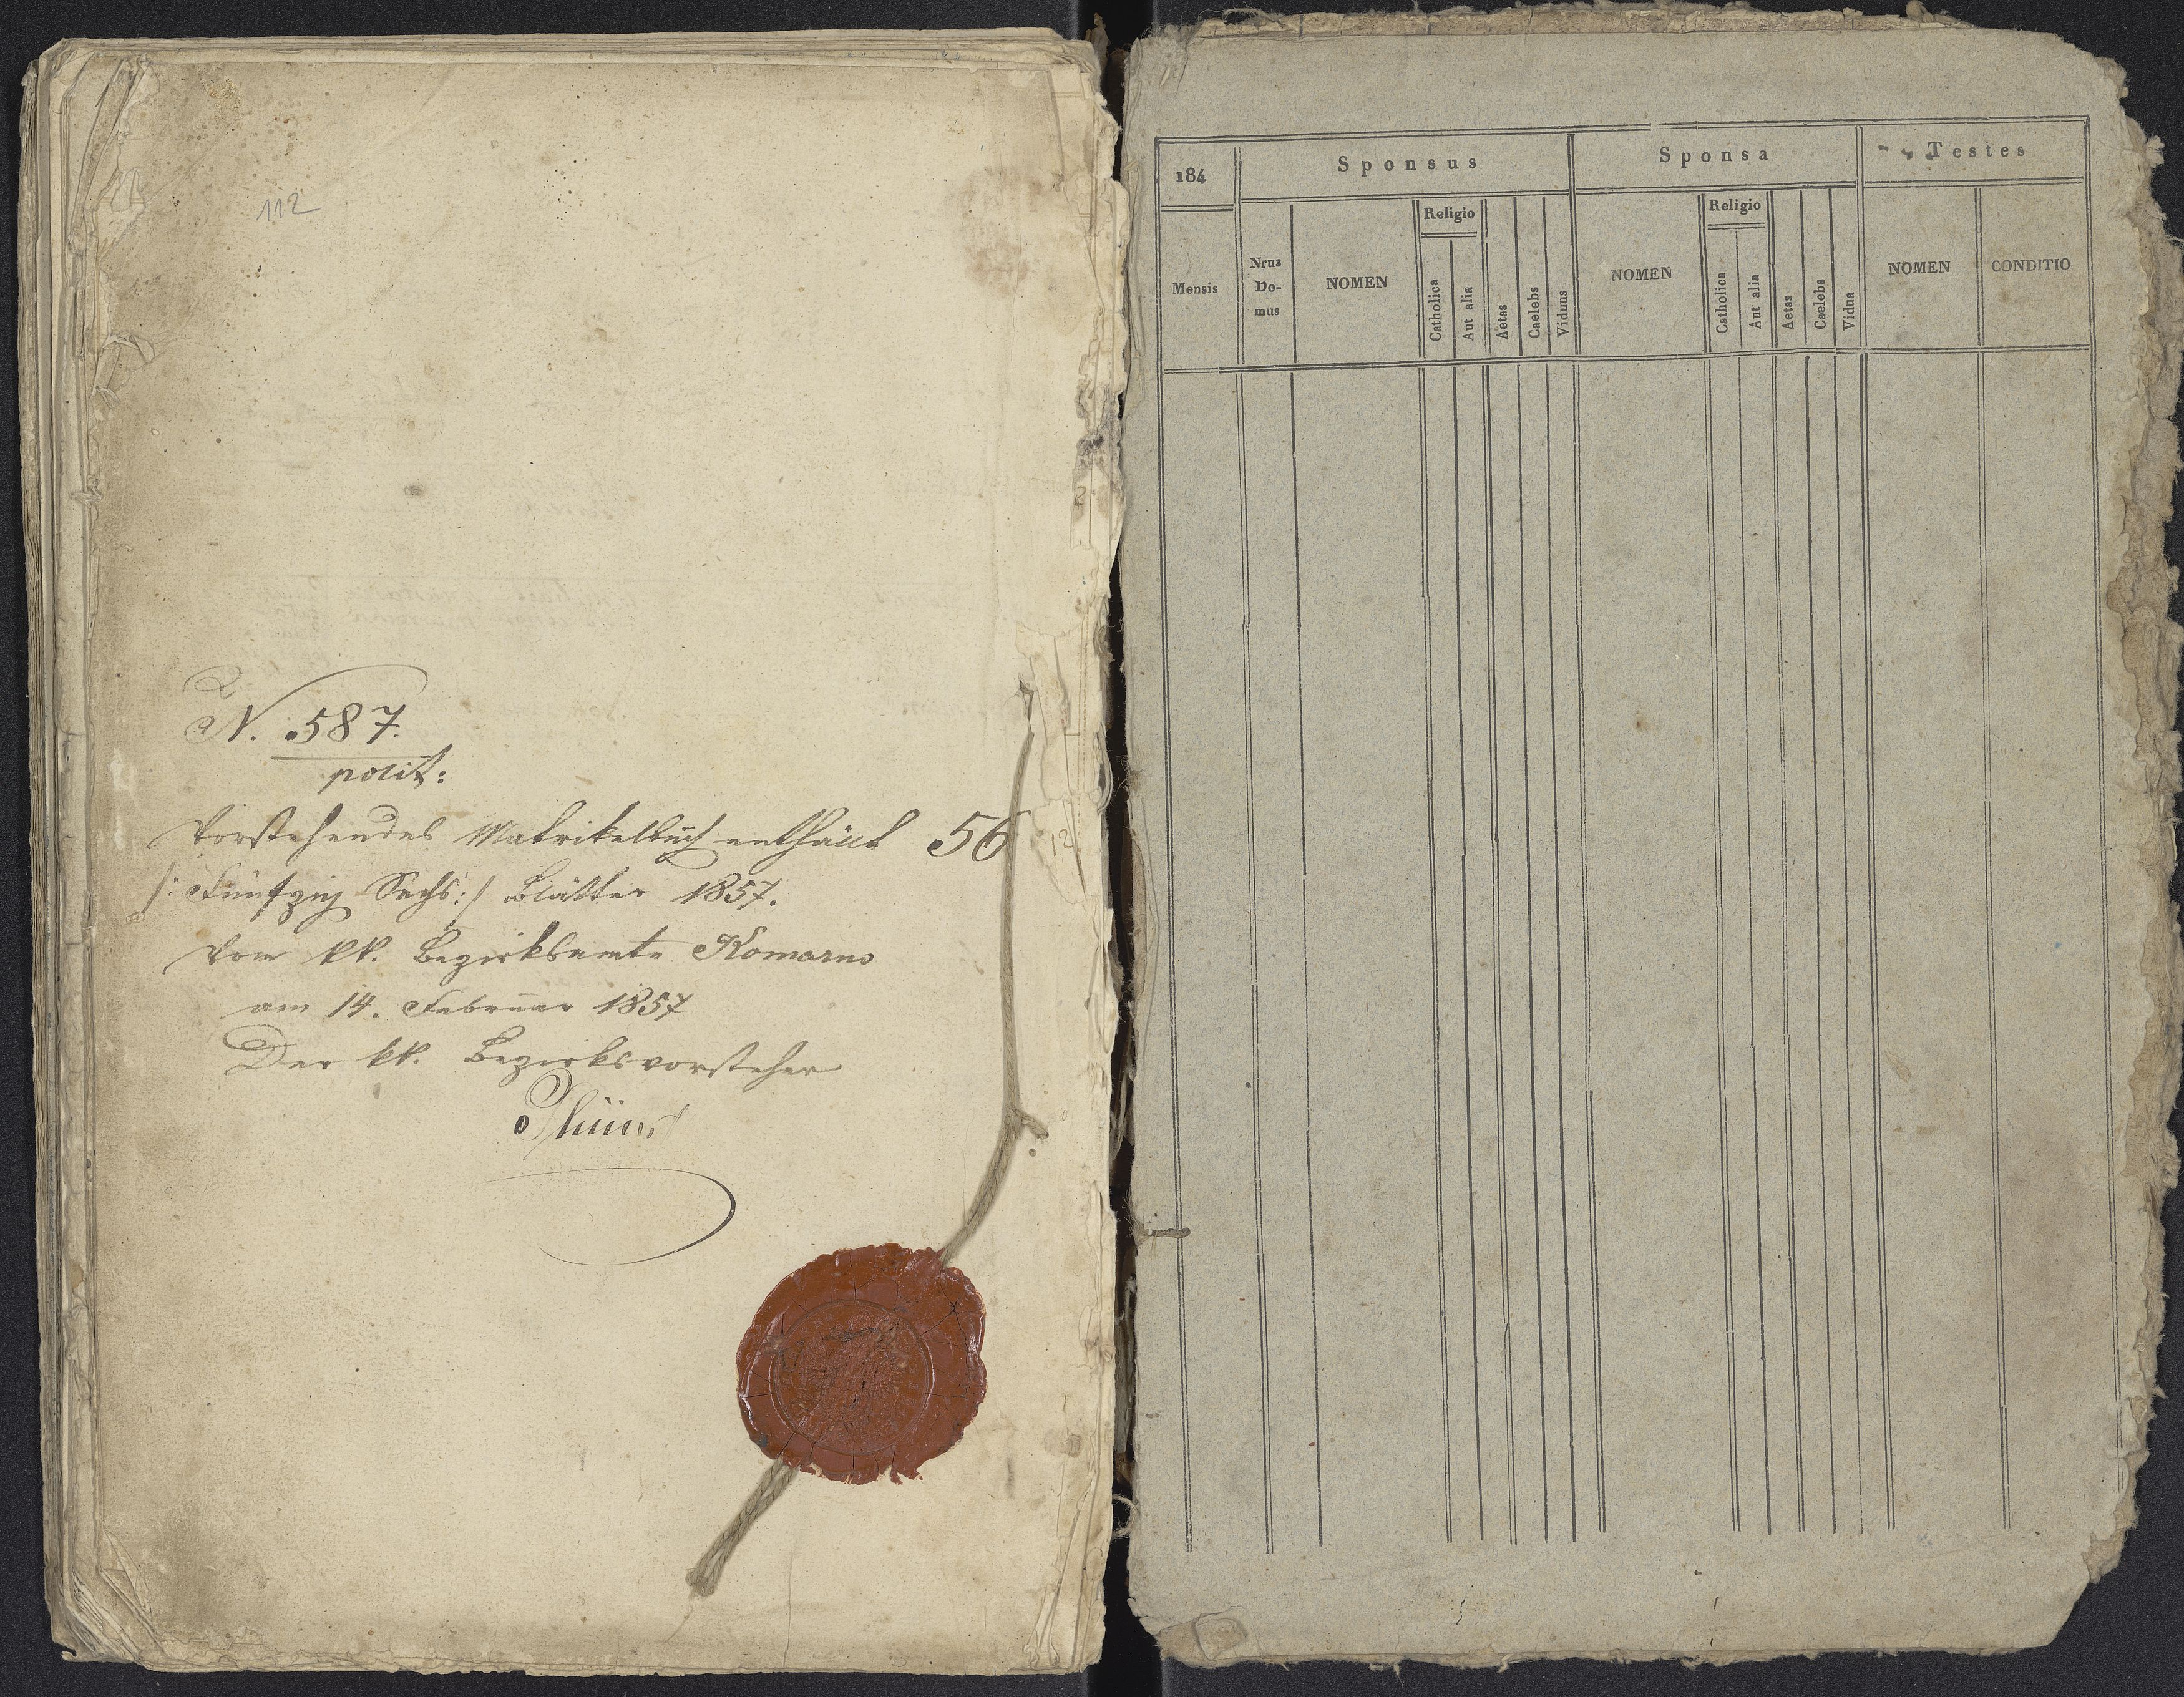 112
N. 587.
polit:
Vorstehendes Matrikelbuch enthällt 56
/: Fünfzig Sechs :/ Blätter 1857.
Vom kk. Bezirksamte Komarno
am 14. Februar 1857
Der kk. Bezirksvorsteher
12
184
Sponsus
Sponsa
Testes
Mensis
Nrus Do- mus
NOMEN
Religio
Catholica
Aut alia
Aetas
Caelebs
Viduus
NOMEN
Religio
Catholica
Aut alia
Aetas
Caelebs
Vidua
NOMEN
CONDITIO